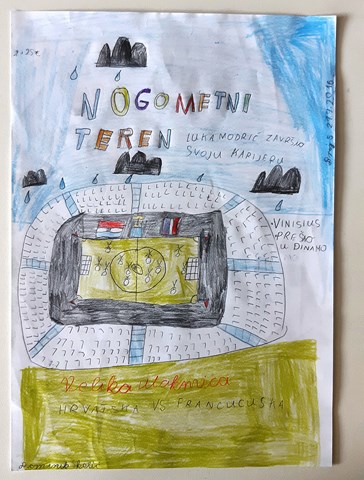 NOGOMETNI
TEREN
LUKA MODRIĆ ZAVRŠIO
SVOJU KARIJERU
VINISIUS
PREŠAO
U DINAMO
Velika Utakmica
HRVATSKA VS FRANCUCUSKA